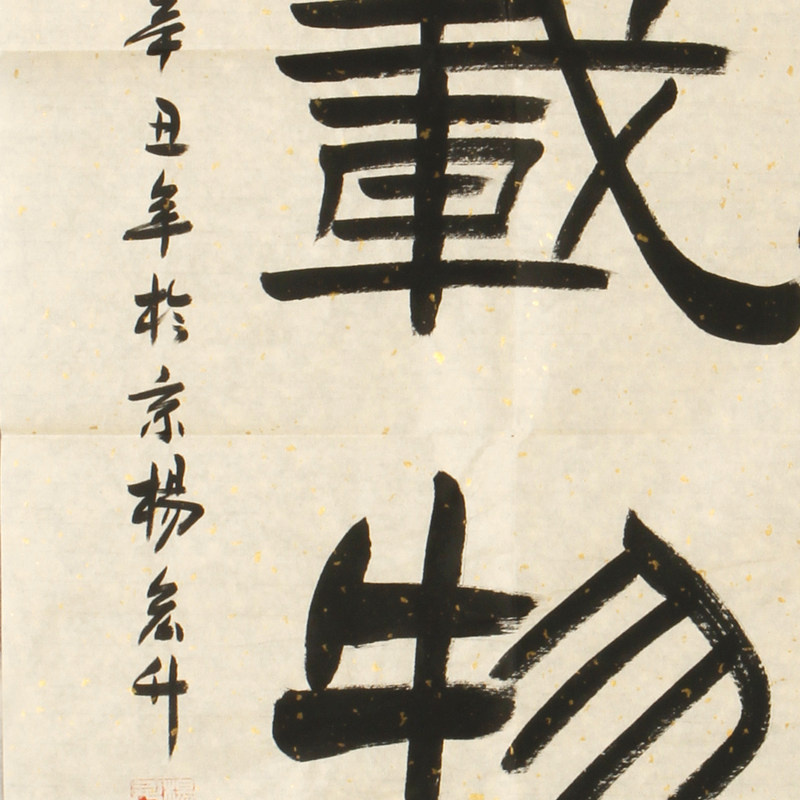 載物
辛丑年於京楊宏升